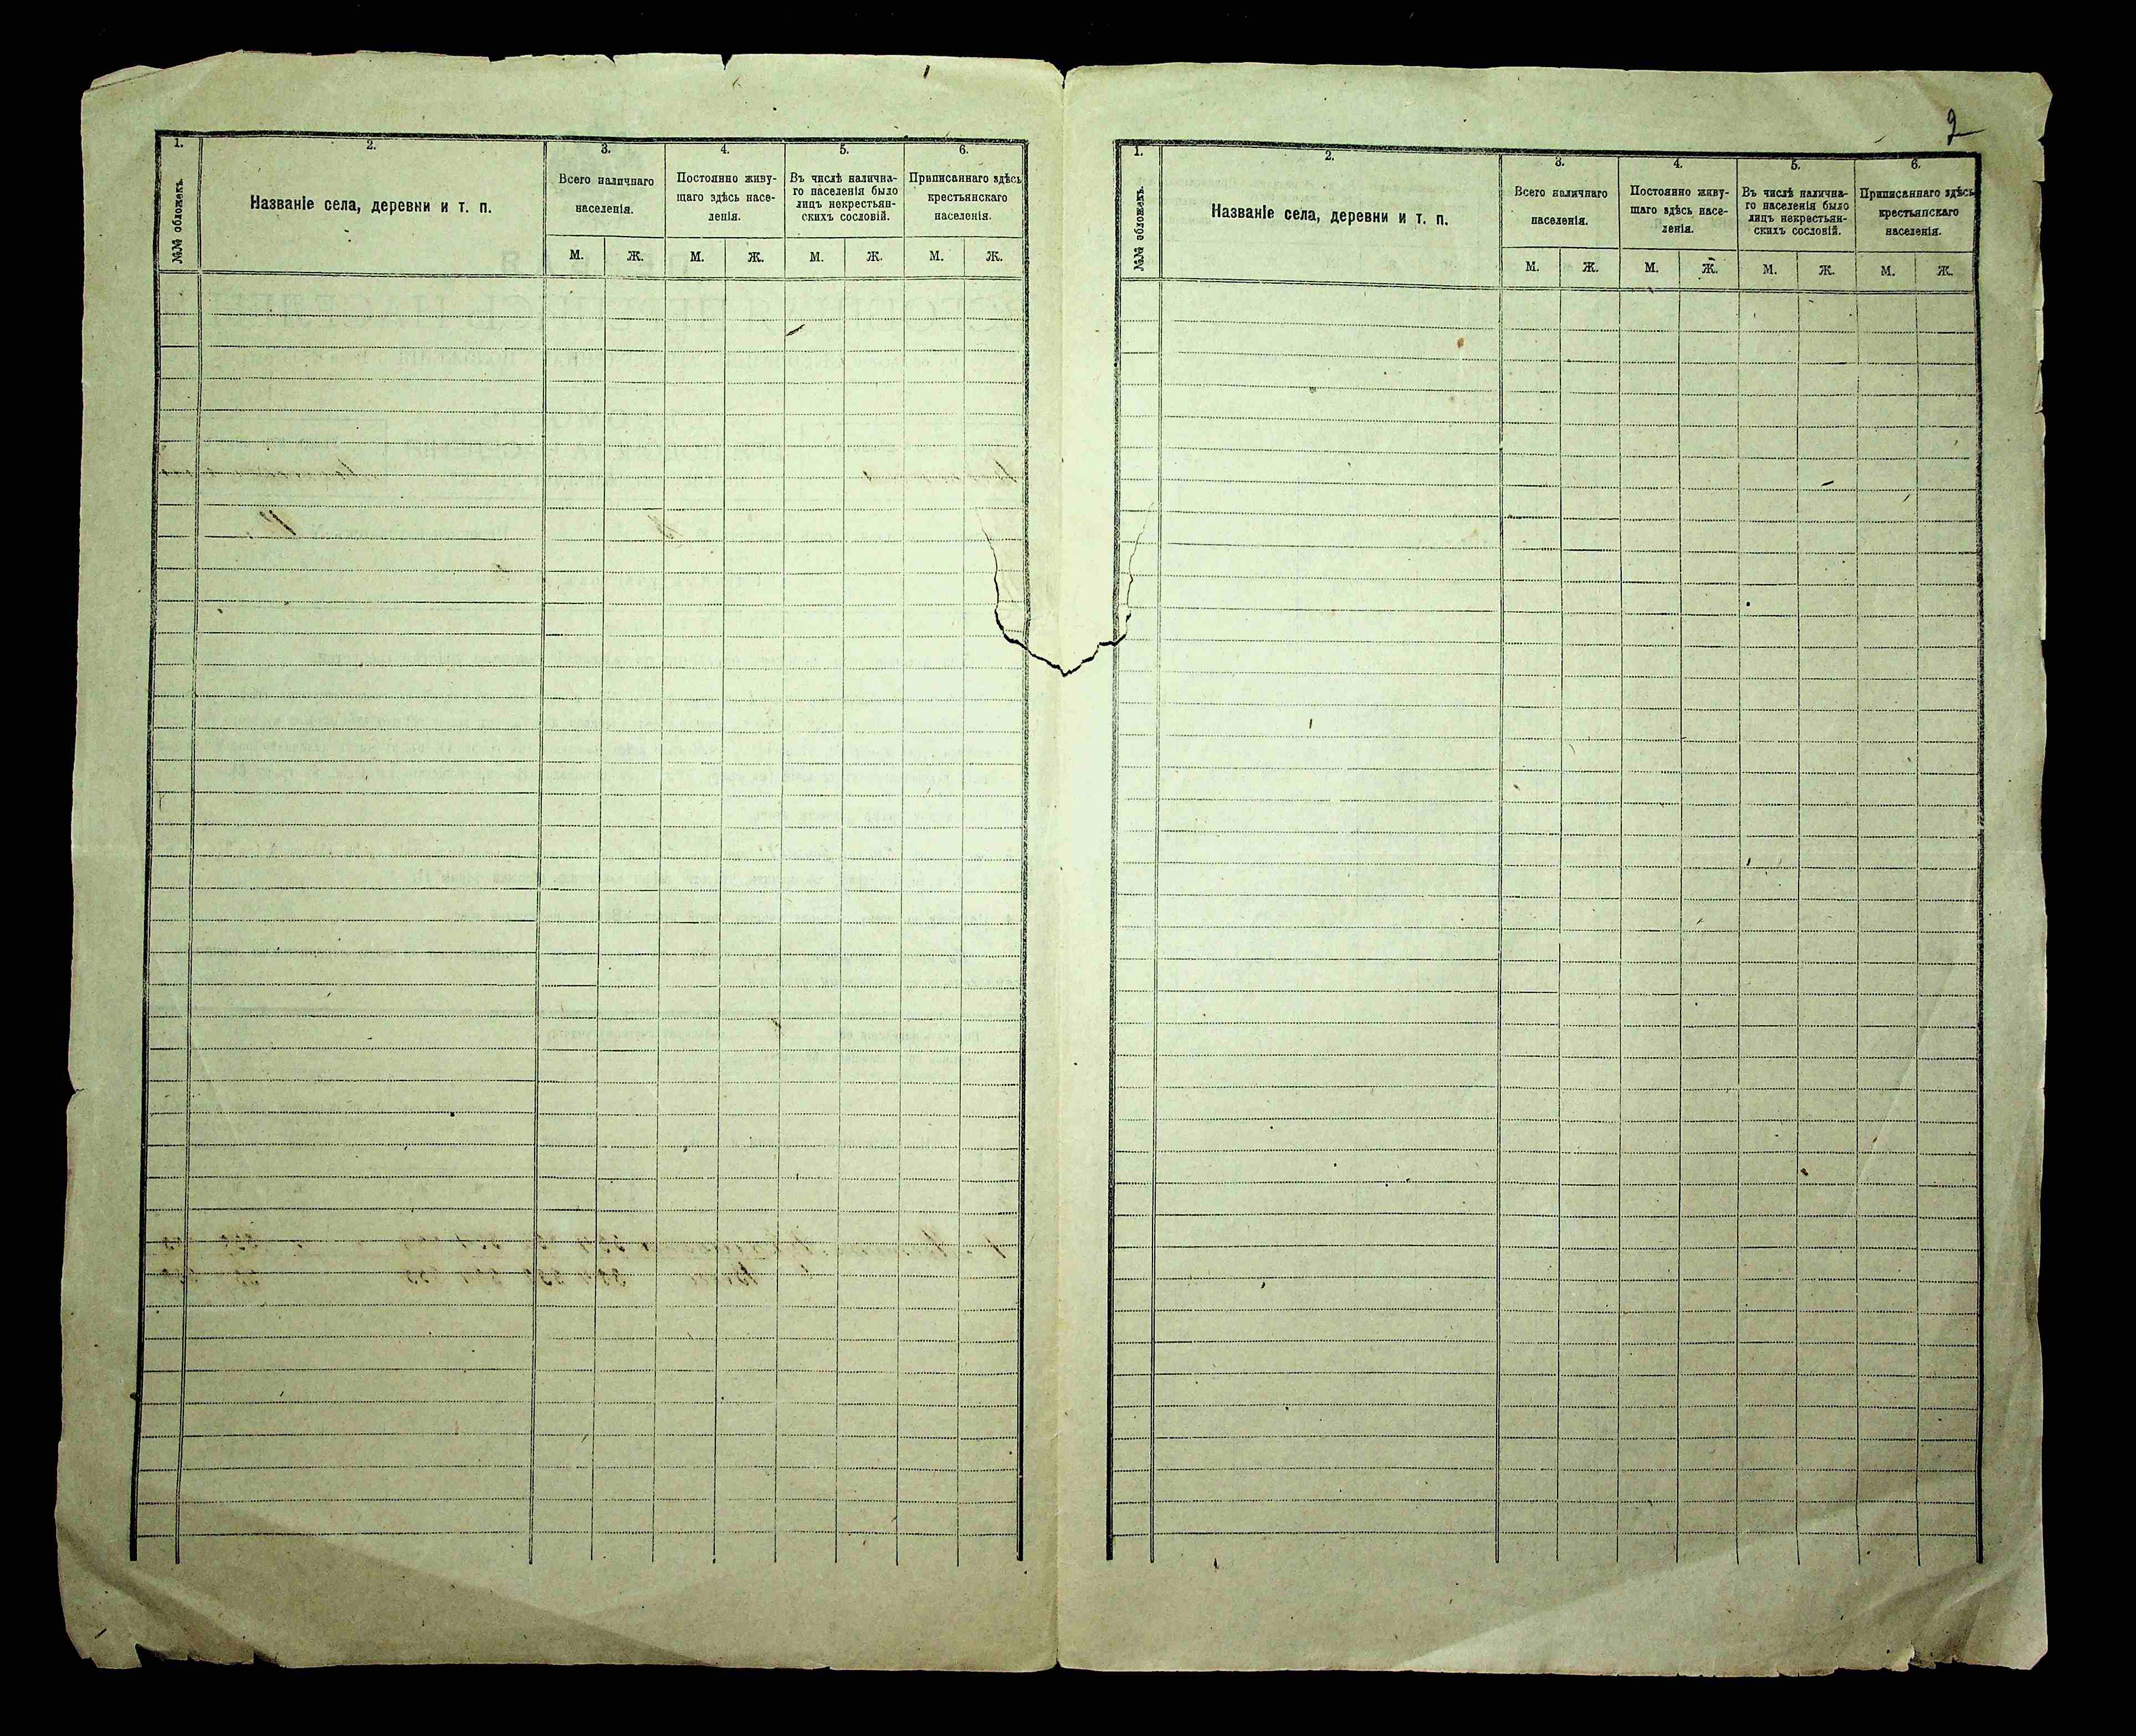 2
1.
№№ обложекъ.
2.
Названіе села, деревни и т. п.
3.
Всего наличнаго
населенія.
М. Ж.
4.
Постоянно живу-
щаго здѣсь насе-
ленія.
М. Ж.
5.
Въ числѣ налична-
го населенія было
лицъ некрестьян-
скихъ сословій.
М. Ж.
6.
Приписаннаго здѣсь
крестьянскаго
населенія.
М. Ж.
1.
№№ обложекъ.
2.
Названіе села, деревни и т. п.
3.
Всего наличнаго
населенія.
М. Ж.
4.
Постоянно живу-
щаго здѣсь насе-
ленія.
М. Ж.
5.
Въ числѣ налична-
го населенія было
лицъ некрестьян-
скихъ сословій.
М. Ж.
6.
Приписаннаго здѣсь
крестьянскаго
населенія.
М. Ж.